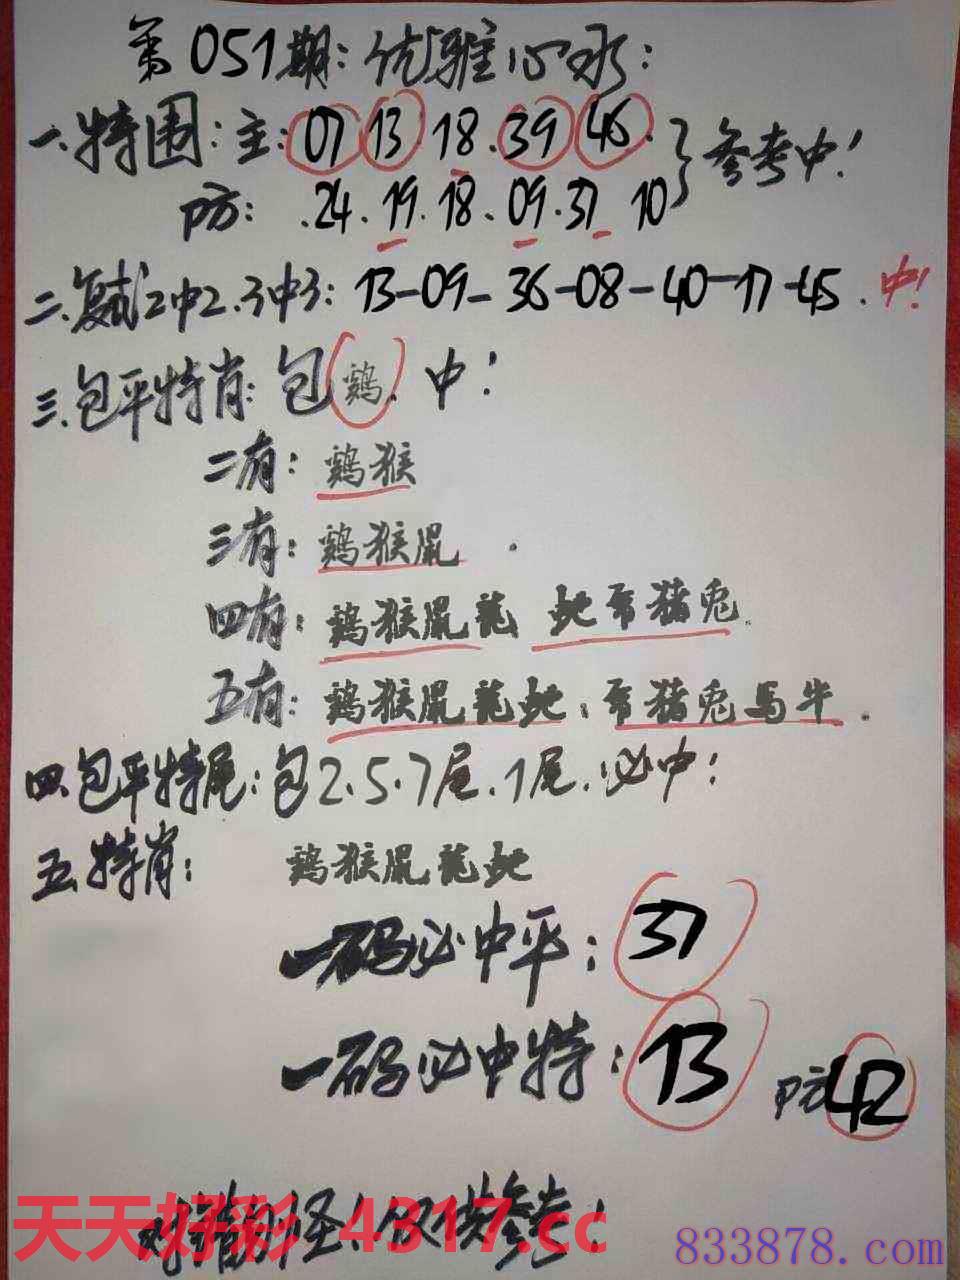 第051期：优雅心水：
一.特围：主：07 13.18.39 46.
参考中！
防：.24.19.18.09.37 10
二.复式2中2.3中3：13-09-36-08-40-17-45.中！
三.包平特肖：包鸡.中！
二有：鸡猴
三有：鸡猴鼠.
四有：鸡猴鼠龙 蛇 猪兔.
五有：鸡猴鼠龙蛇： 猪兔马牛.
四.包平特尾：包2.5.7尾.1尾.必中！
五.特肖： 鸡猴鼠龙蛇
一码必中平：37
一码必中特：13 防42
对错勿怪！仅供参考！
天天好彩 4317.cc
833878.com